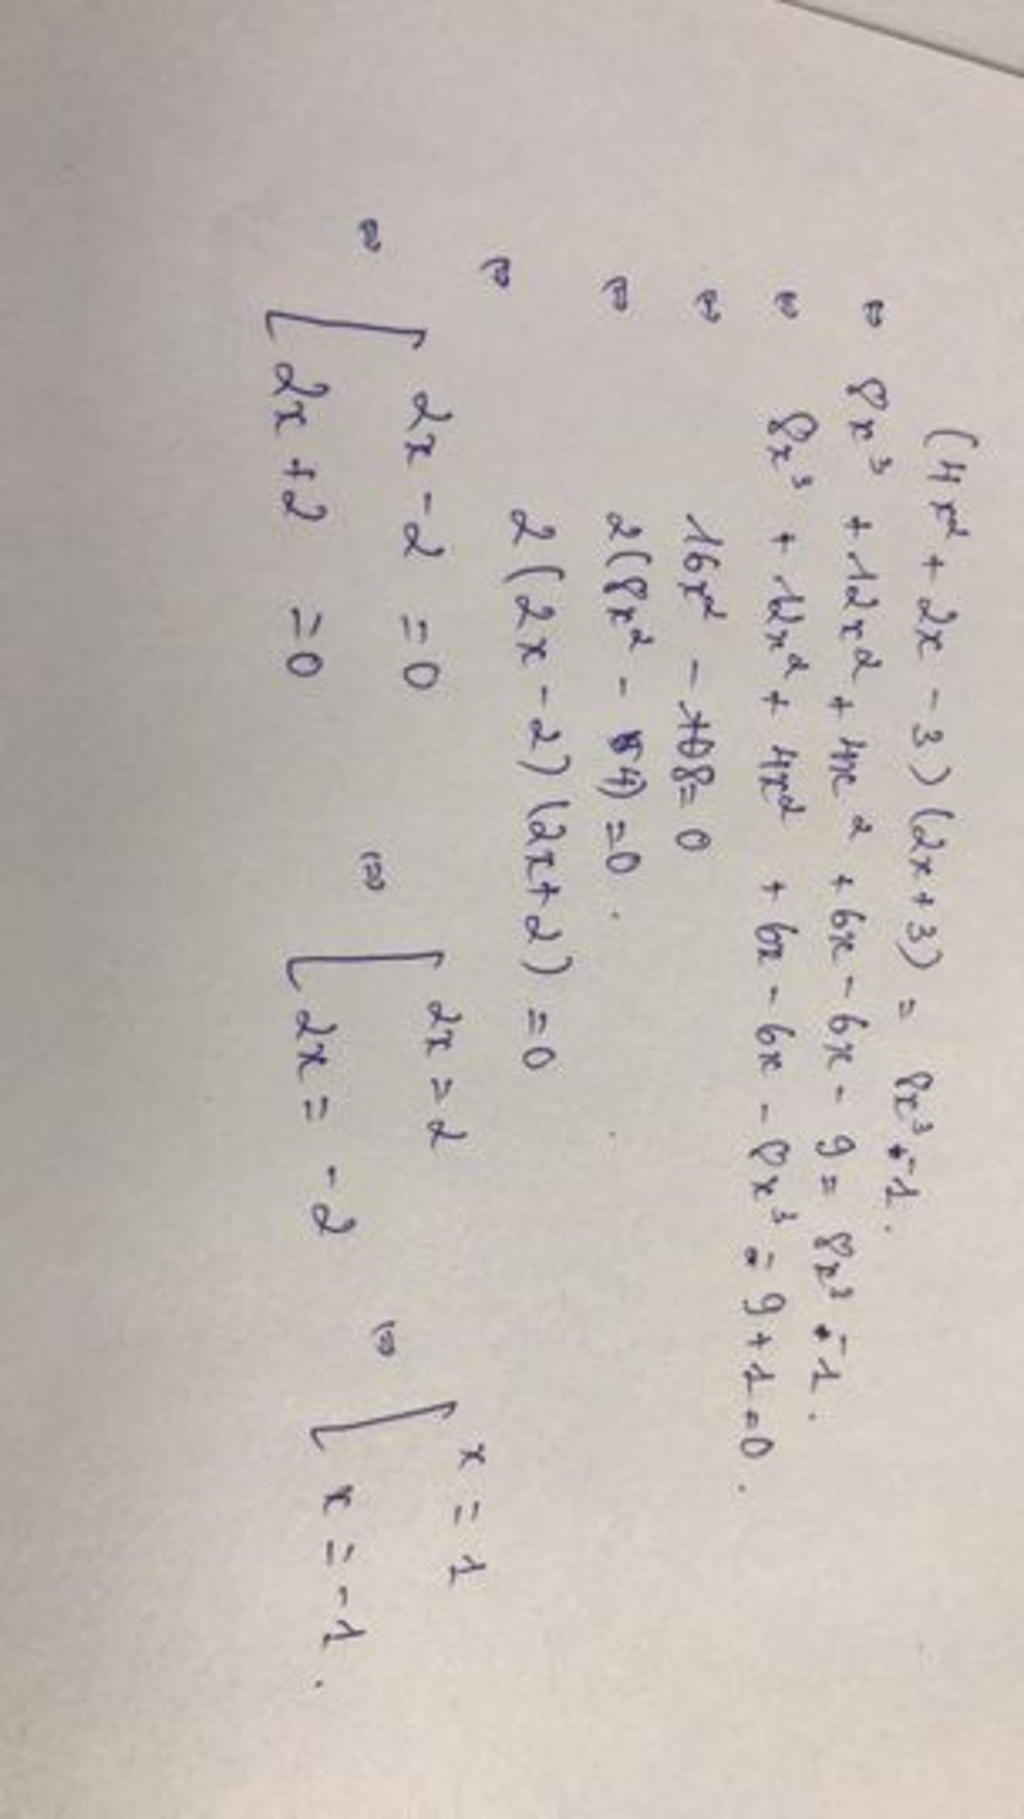 (4x² + 2x - 3)(2x + 3) = 8x³ - 1.
⇔ 8x³ + 12x² + 4x² + 6x - 6x - 9 = 8x³ - 1.
⇔ 8x³ + 12x² + 4x² + 6x - 6x - 8x³ - 9 + 1 = 0.
⇔ 16x² - 8 = 0
⇔ 2(8x² - 4) = 0.
⇔ 2(2x - 2)(2x + 2) = 0
⇔ [ 2x - 2 = 0 ⇔ [ 2x = 2 ⇔ [ x = 1
2x + 2 = 0 2x = -2 x = -1.